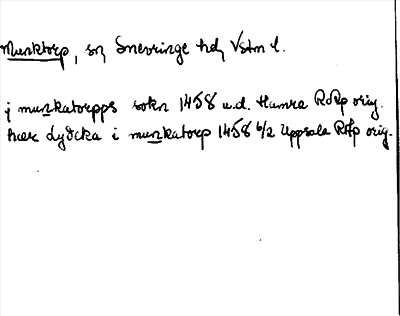 Munktorp, sn Snevringe hd, Vstm l.
j munkatorpps sokn 1458 u.d. Hamra RApp orig.
hær Lydeka i munkatorp 1458 6/2 Uppsala RAp orig.